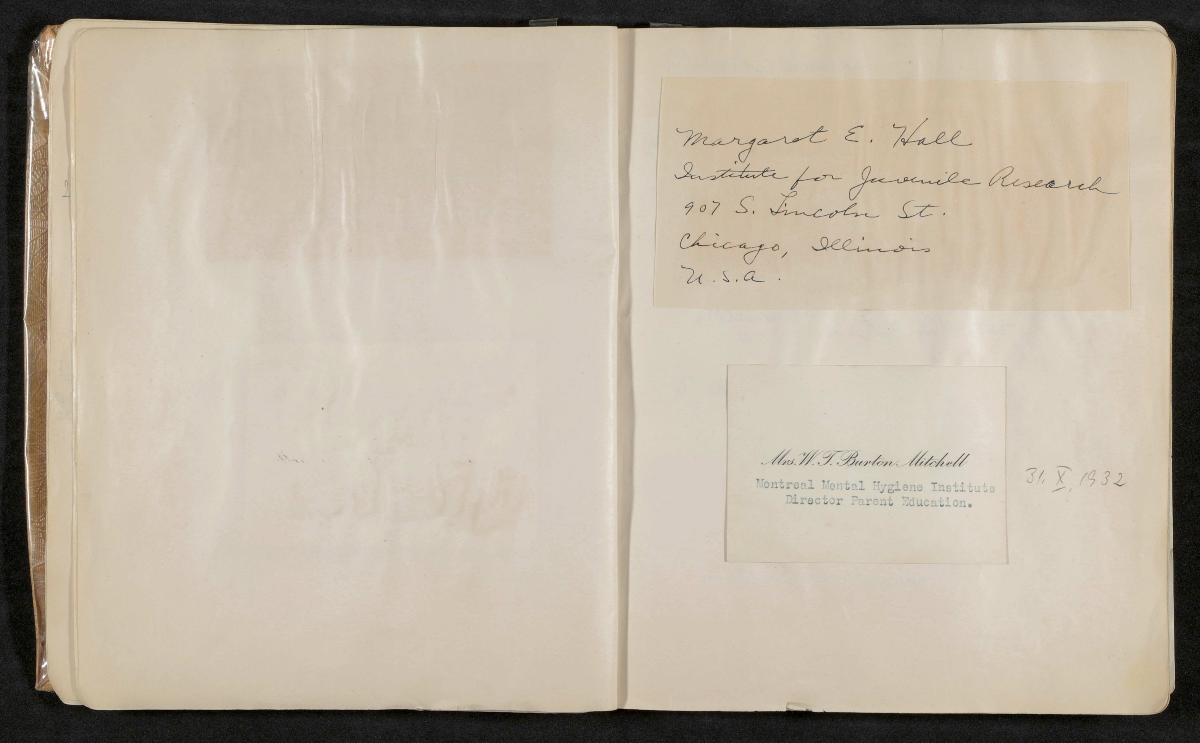 Margaret E. Hall
Institute for Juvenile Research
907 S. Lincoln St.
Chicago, Illinois
U.S.A.
Mrs. W. T. Burton Mitchell
Montreal Mental Hygiene Institute
Director Parent Education.
31. X. 1932